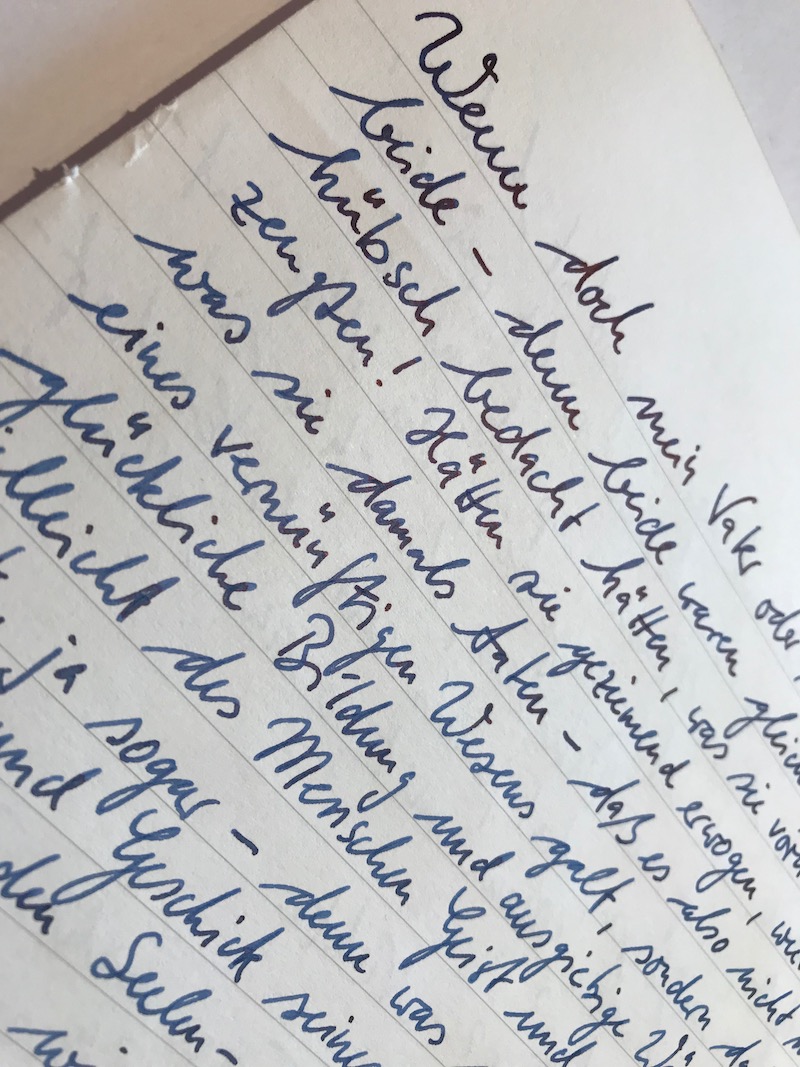 Wenn doch mein Vater oder
beide – denn beide waren gleich
hübsch bedacht hätten, was sie vor
zeugten! Hätten sie geziemend erwogen, wie
was sie damals taten – daß es also nicht
eines vernünftigen Wesens galt, sondern da
glückliche Bildung und ausgiebige
elleicht des Menschen Geist und
ja sogar – denn was
und Geschick seine
den Seelen-